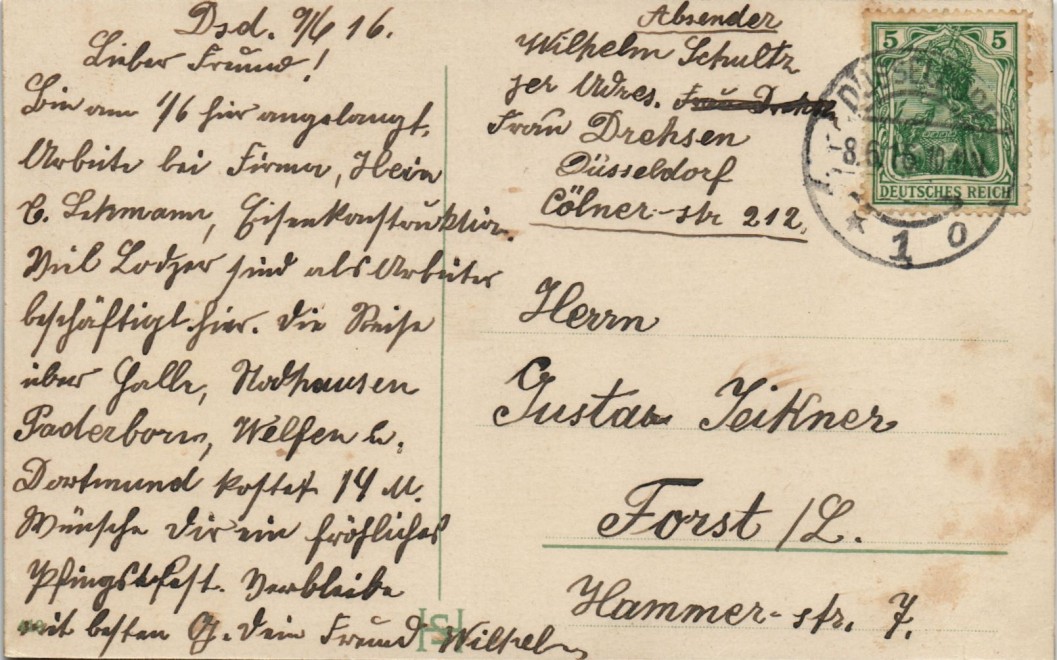 Dsd. 9/6 16.
Lieber Freund!
Bin am 1/6 hier angelangt.
Arbeite bei Firma, Hein
C. Lehmann, Eisenkonstruktion.
Viel Lodzer sind als Arbeiter
beschäftigt hier. Die Reise
über Halle, Nodhausen
Paderborn, Welfen u.
Dortmund kostet 14 M.
Wünsche Dir ein fröhliches
Pfingstfest. Verbleibe
mit besten G. Dein Freund Wilhelm
Absender
Wilhelm Schultz
per Adres. Frau Dreh
Frau Drehsen
Düsseldorf
Cölner-str 212.
5 5
DEUTSCHES REICH
DÜSSELDORF
8.6.16. 10-11
* 1 o
Herrn
Gustav Zeikner
Forst /L.
Hammer-str. 7.
HS